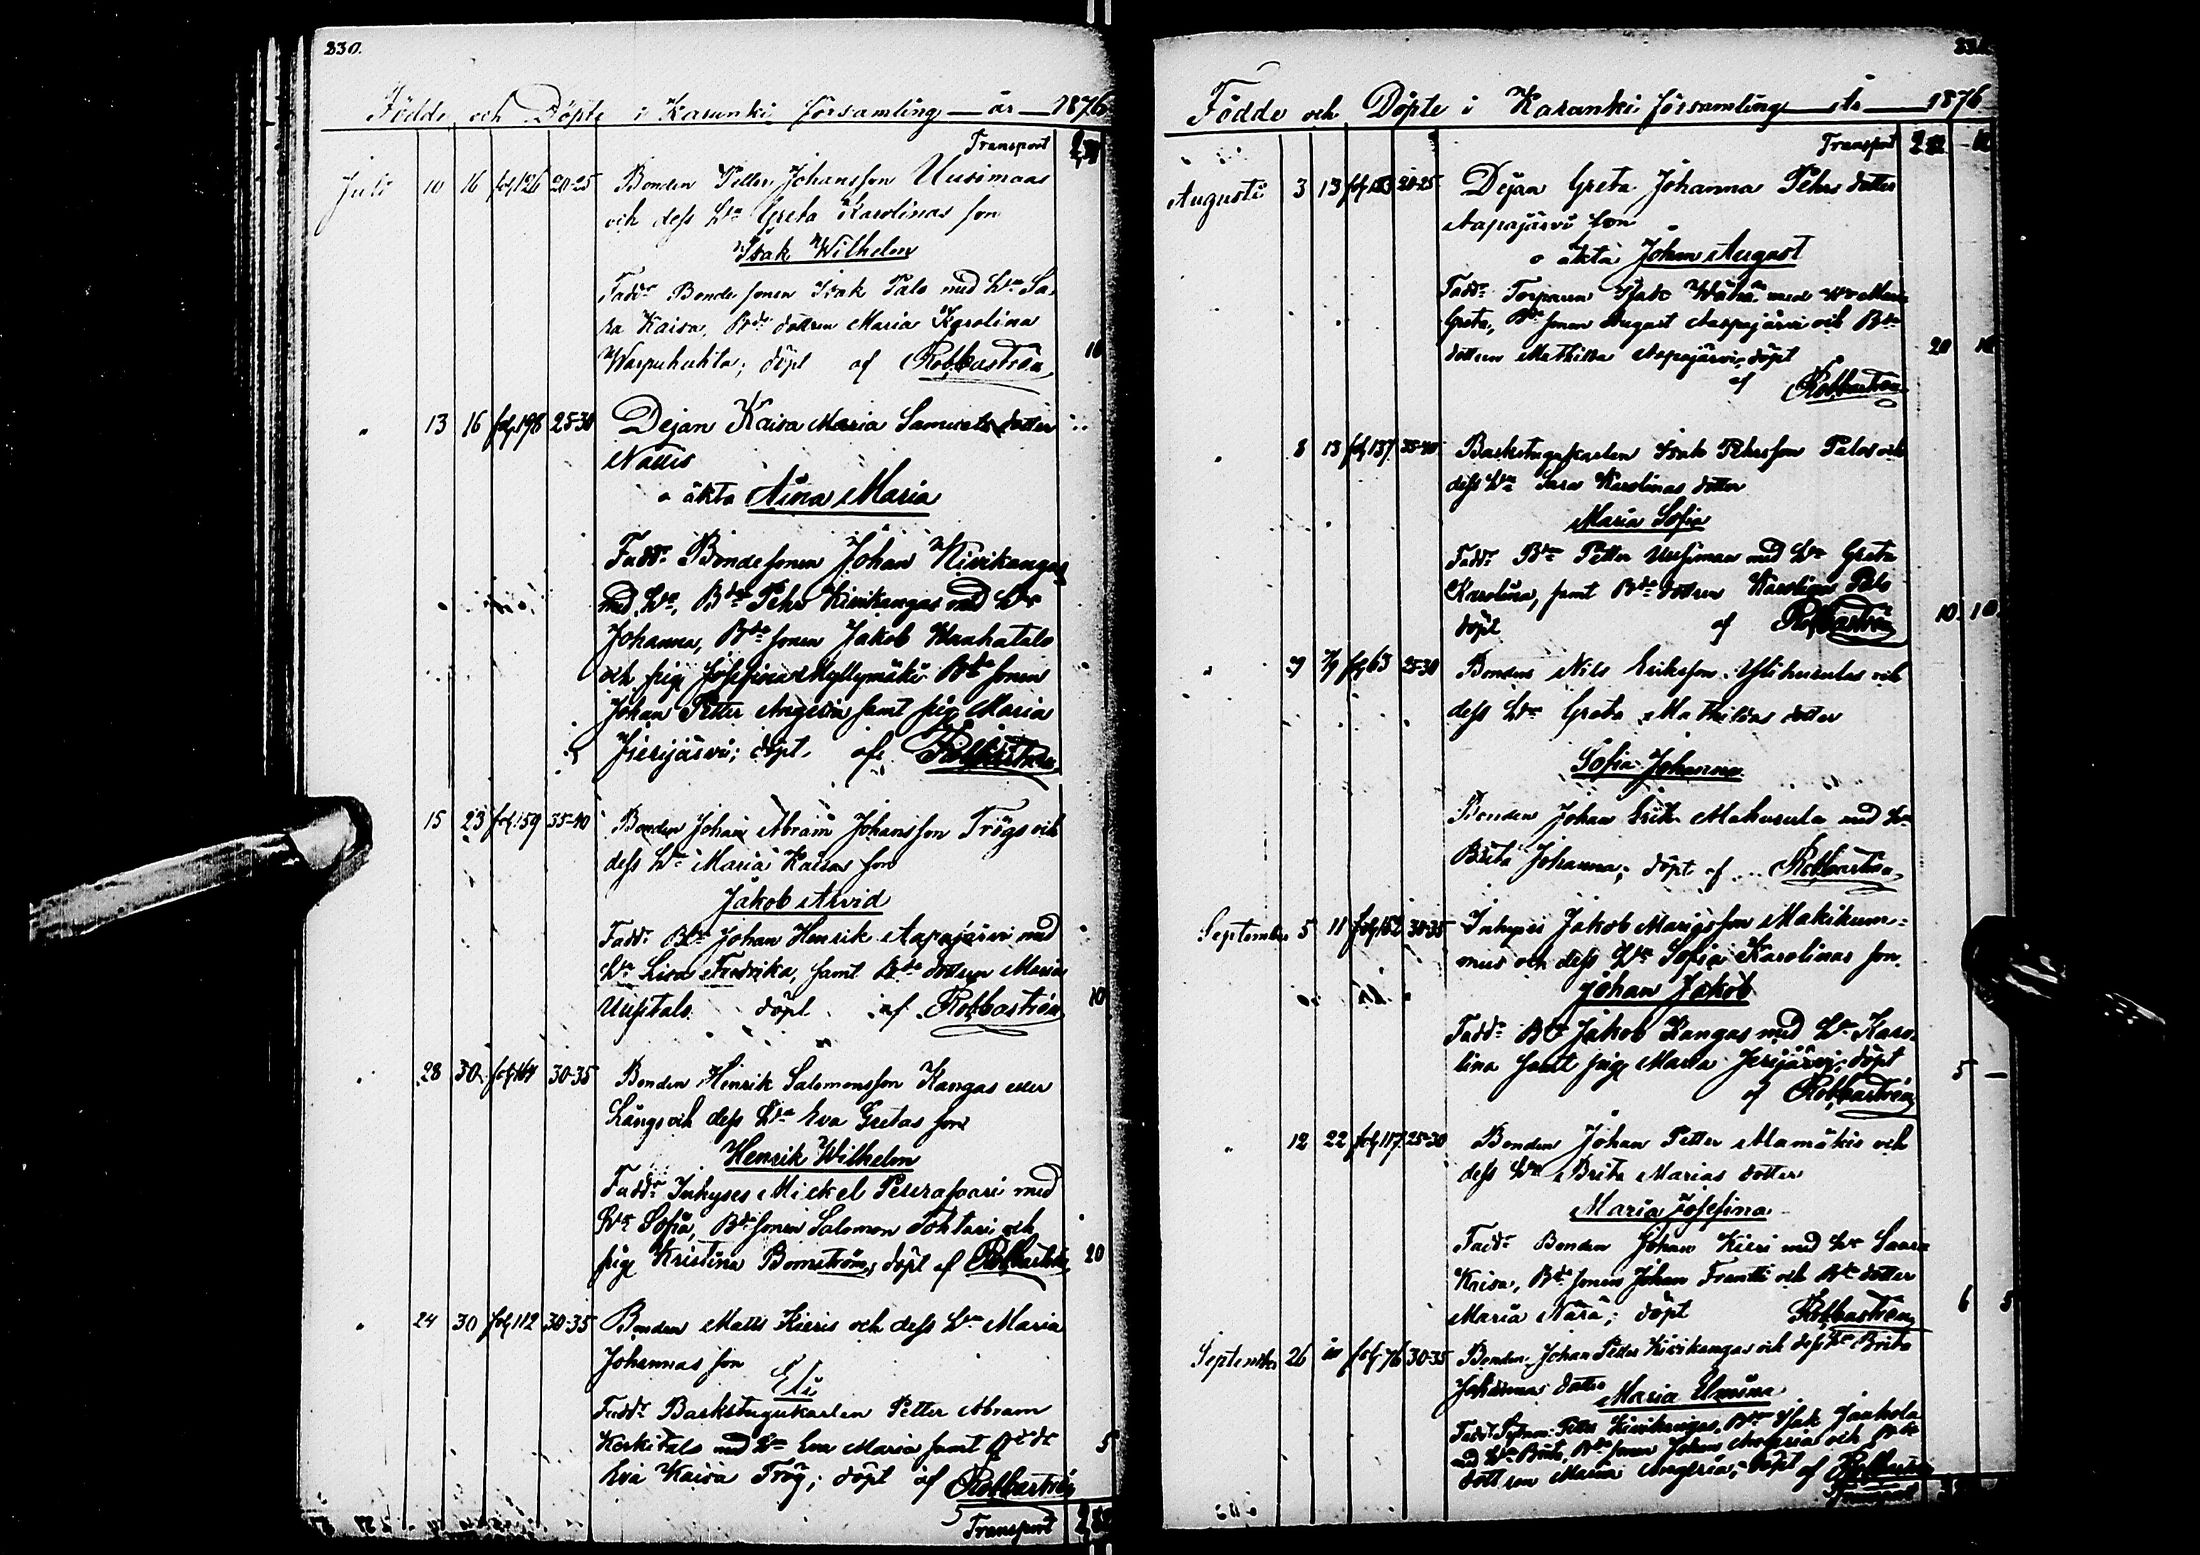 230.
Födde och Döpte i Karunki församling — år — 1876
Transport
Juli 10 16 fol. 126 20-25 Bonden Petter Johansson Uusimaas
och dess H:u Greta Karolinas son
Isak Wilhelm
Fadd:r Bonde sonen Isak Palo med H:u Sa-
ra Kaisa, B:de dottren Maria Karolina
Warpuhuhta; döpt af Robbaström 10
" 13 16 fol. 198 25-30 Dejan Kaisa Maria Samuels dotter
Nallis
o äkta Aina Maria
Fadd:r Bondesonen Johan Kivikangas
med H:u, B:den Pehr Kivikangas med H:u
Johanna, B:de sonen Jakob Wanhatalo
och pig. Josefina Myllymäki B:de sonen
Johan Petter Angeria samt pig. Maria
Jierijärvi; döpt af Robbaström
15 23 fol. 159 35-40 Bonden Johan Abram Johansson Frögs och
dess H:u Maria Kaisas son
Jakob Arvid
Fadd:r B:den Johan Henrik Aapajärvi med
H:u Lisa Fredrika, samt B:de dottren Maria
Uusitalo döpt af Robbaström 10
" 28 30 fol. 164 30-35 Bonden Henrik Salomonsson Kangas eller
Långs och dess H:u Eva Gretas son
Henrik Wilhelm
Fadd:r Inhyses Mickel med
H:u Sofia, B:de sonen Salomon och
pig. Kristina Boonström; döpt af Robbaström 20
" 24 30 fol. 112 30-35 Bonden Matts Kieris och dess H:u Maria
Johannas son
Eli
Fadd:r Backstugukarlen Petter Abram
Koskitalo med H:u Eva Maria samt 5
Eva Kaisa Frög; döpt af Robbaström
Transport
Födde och Döpte i Karunki församling år 1876
Transport
Augusti 3 13 20-25 Dejan Greta Johanna Pehrs dotter
Aapajärvi son
o äkta Johan August
Fadd:r Torparen Isak Wähä med H:u
Greta, B:de sonen August Aapajärvi och B:de
dottren Mathilda Aapajärvi, döpt 20 10
af Robbaström
" 8 13 fol. 137 35-40 Backstugukarlen Isak Pehrsson Palos och
dess H:u Sara Karolinas dotter
Maria Sofia
Fadd:r B:den Petter Uusimaa med H:u Greta
Karolina, samt B:de dottren Karolina Palo
döpt af Robbaström 10 10
" fol. 63 25-30 Bonden Nils Eriksson och
dess H:u Greta Mathildas dotter
Sofia Johanna
Bonden Johan Erik med H:u
Brita Johanna; döpt af Robbaström
September 5 11 fol. 152 30-35 Inhyses Jakob Mangsson Makikum-
mus och dess H:u Sofia Karolinas son
Johan Jakob
Fadd:r B:den Jakob Kangas med H:u Karo-
lina samt pig. Maria Jerijärvi; döpt 5 —
af Robbaström
" 12 22 fol. 117 25-30 Bonden Johan Petter Alamäkis och
dess H:u Brita Marias dotter
Maria Josefina
Fadd:r Bonden Johan Kieri med H:u Saara
Kaisa, B:de sonen Johan Frantti och B:de dotter
Maria Närä; döpt Robbaström 6 5
September 26 fol. 76 30-35 Bonden Johan Petter Kivikangas och dess H:u Brita
Johannas dotter Maria Elmina
Fadd:r Petter Kivikangas, B:den Isak Jaakola
med H:u Brita, B:de sonen Johan Angeria och B:de
dottren Maria Angeria; döpt af Robbaström
Transport